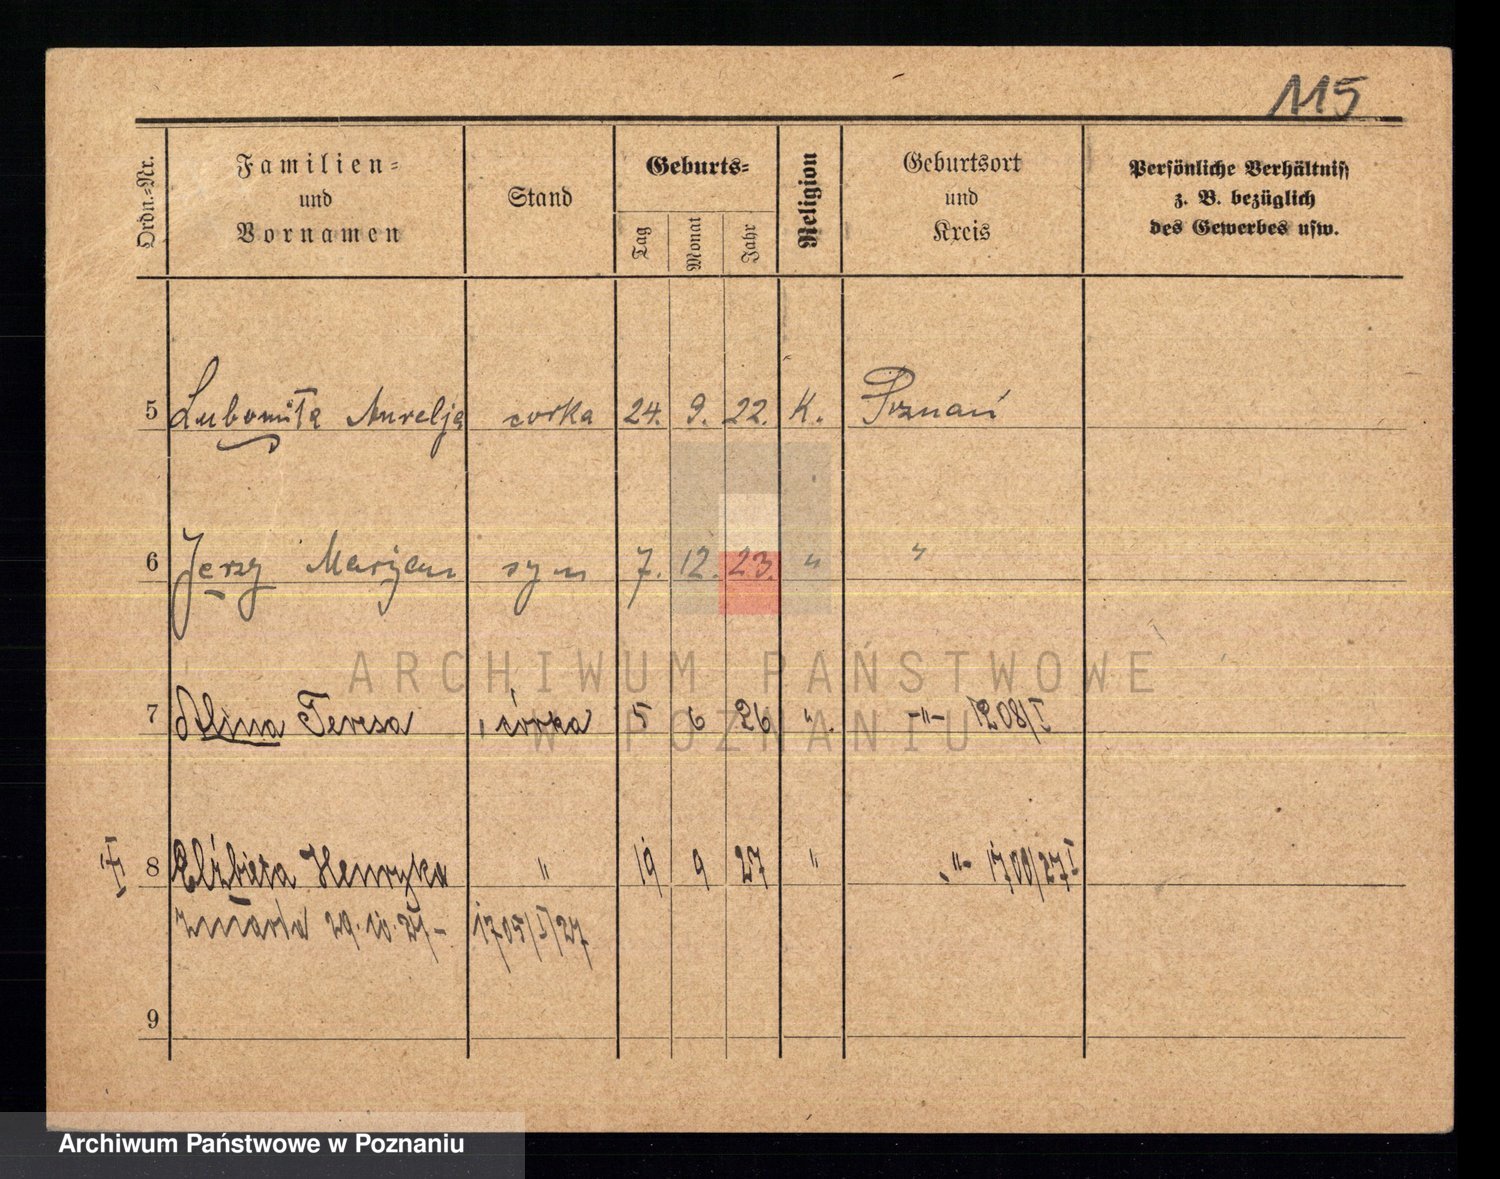 115
Ordn.-Nr.
Familien-
und
Vornamen
Stand
Geburts-
Tag
Monat
Jahr
Religion
Geburtsort
und
Kreis
Persönliche Verhältniss
z. B. bezüglich
des Gewerbes usw.
5 Lubomiła Aurelja corka 24. 9. 22. K. Poznań
6 Jerzy Marjan syn 7. 12. 23. " "
7 Alina Teresa córka 5 6 26 " -"- 1208/I
8 Elżbieta Henryka " 19 9 27 " -"- 1700/27 I
zmarła 29.10.27- 1705/I/27
9
ARCHIWUM PAŃSTWOWE
W POZNANIU
Archiwum Państwowe w Poznaniu